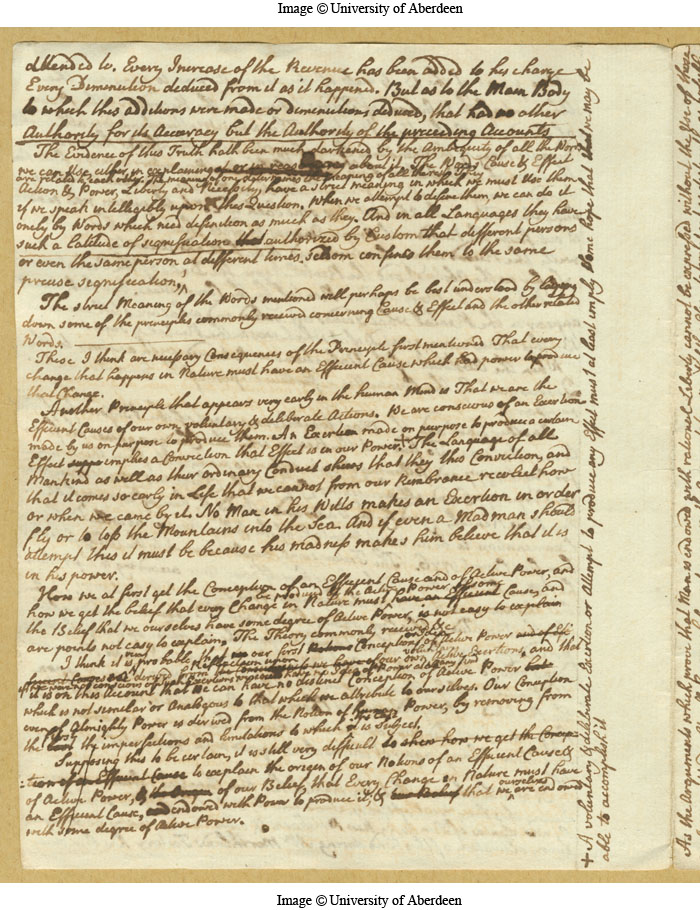 Image © University of Aberdeen
attended to. Every Increase of the Revenue has been added to his charge
Every Diminution deduced from it as it happened. But as to the Main Body
to which this additions were made or diminutions deduced, that had no other
Authority for its Accuracy but the Authority of the preceeding Accounts
The Evidence of this Truth hath been much darkened by the Ambiguity of all the Words
we can use either in explaining or in reasoning about it. The Words Cause & Effect
Action & Power, Liberty and Necessity, have a strict meaning in which we must Use them
if we speak intelligibly upon this Question. When we attempt to define them we can do it
only by Words which need definition as much as they. And in all Languages they have
such a latitude of signification authorized by Custom that different persons
or even the same person at different times seldom confine them to the same
precise signification,
The strict Meaning of the Words mentioned will perhaps be best understood by laying
down some of the principles commonly received concerning Cause & Effect and the other related
Words.
These I think are necessary Consequences of the Principle first mentioned That every
change that happens in Nature must have an Efficient Cause which had power to produce
that Change.
Another Principle that appears very early in the human Mind is That we are the
Efficient Causes of our own voluntary & deliberate Actions. We are conscious of an Exertion
made by us on purpose to produce them. An Exertion made on purpose to produce a certain
Effect implies a Conviction that Effect is in our Power. + The Language of all
Mankind as well as their ordinary Conduct shews that they this Conviction, and
that it comes so early in Life that we cannot from our Rembrance recollect how
or when we came by it. No Man in his Wits makes an Exertion in order
fly or to toss the Mountains into the Sea. And if even a Mad man should
attempt this it must be because his madness makes him believe that it is
in his power.
How we at first get the Conception of an Efficient Cause and of Active Power, and
how we get the belief that every Change in Nature must have an Efficient Cause, and
the Belief that we ourselves have some degree of Active Power, is not easy to explain
are points not easy to explain. The Theory commonly received &c
I think it is probable, that our first Conceptions of Active Power
derived from our voluntary Exertions, and that
it is on this account that we can have no distinct Conception of Active Power
which is not similar or Analogous to that which we attribute to ourselves. Our Conception
even of Almighty Power is derived from the Notion of human Power, by removing from
the imperfections and limitations to which it is subject.
Supposing this to be certain, it is still very difficult to shew how we get the Concep
tion of an Efficient Cause to explain the origin of our Notions of an Efficient Cause &
of Active Power, of our Belief that Every Change in Nature must have
an Efficient Cause, endowed with Power to produce it; & that we ourselves are endowed
with some degree of Active Power.
+ A voluntary & deliberate Exertion or Attempt to produce any Effect must at least imply some hope that we may be
able to accomplish it
As the Arguments which prove that Man is endowed with rational Liberty cannot be expressed without the Use of these
Image © University of Aberdeen